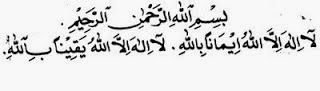 بِسْمِ اللهِ الرَّحْمٰنِ الرَّحِيْمِ.
لَآ اِلٰهَ اِلَّا اللهُ اِيْمَانًا بِاللهِ. لَآ اِلٰهَ اِلَّا اللهُ يَقِيْنًا بِاللهِ.